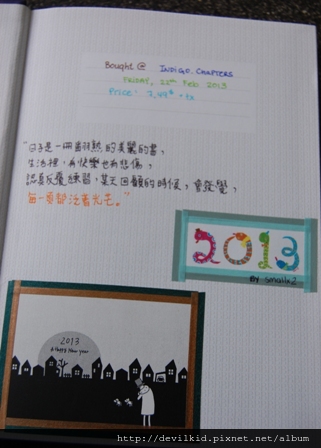 Bought @ INDIGO. CHAPTERS
FRIDAY, 22nd Feb 2013
Price: 7.49$ + tx
"日子是一冊翻熟的美麗的書,
生活裡,有快樂也有悲傷,
認真反覆練習,某天回顧的時候,會發覺,
每一頁都泛著光芒。"
2013
BY small x2
2013
A Happy New year
http://devilkid.pixnet.net/album